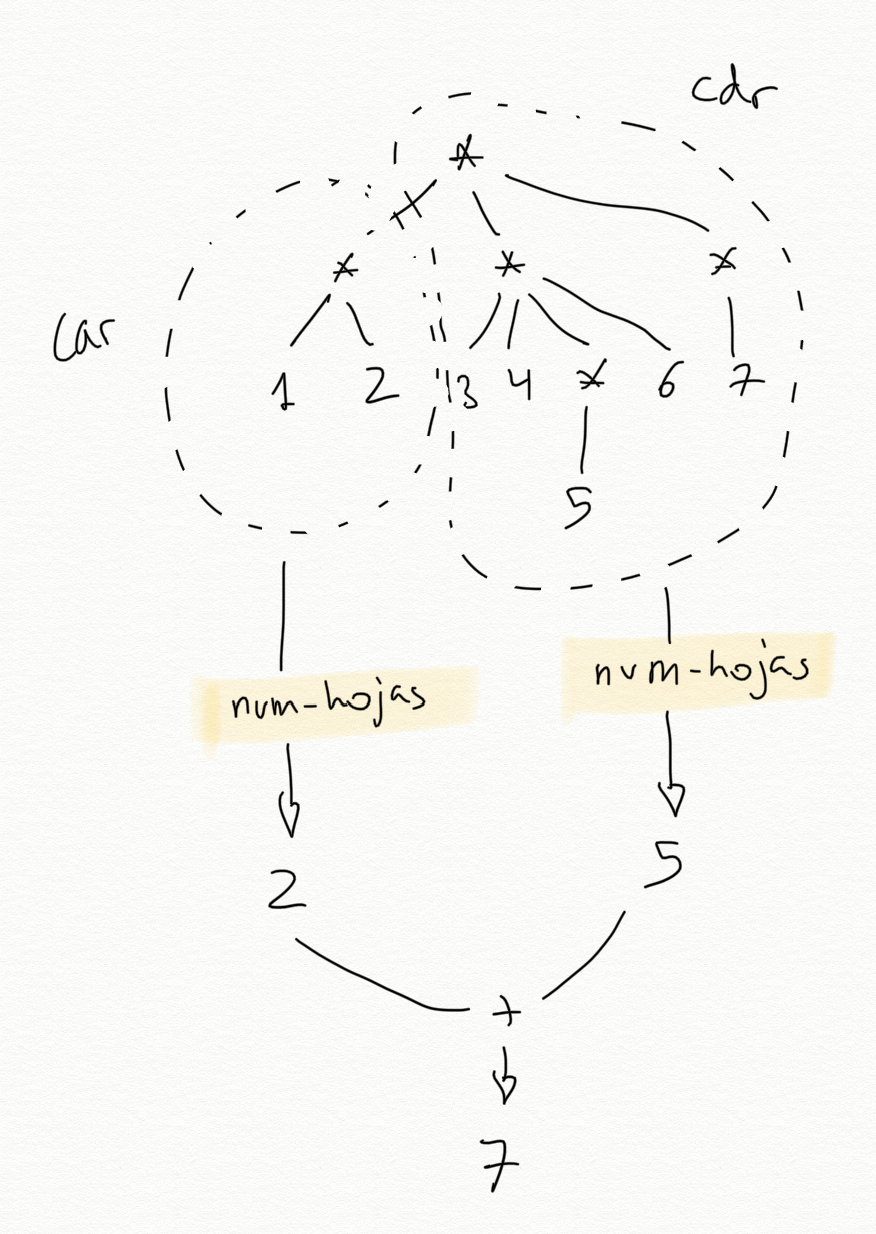 cdr
*
* * *
car
1 2 3 4 * 6 7
5
num-hojas num-hojas
2 5
+
7